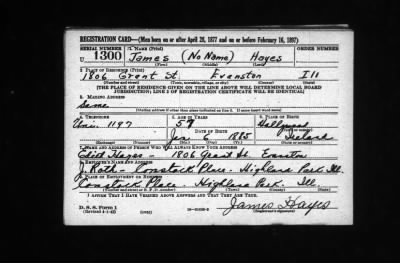 REGISTRATION CARD—(Men born on or after April 28, 1877 and on or before February 16, 1897)
SERIAL NUMBER 1. NAME (Print) ORDER NUMBER
U 1300 James (No Name) Hayes
(First) (Middle) (Last)
2. PLACE OF RESIDENCE (Print)
1806 Grant St. Evanston Ill
(Number and street) (Town, township, village, or city) (County) (State)
[THE PLACE OF RESIDENCE GIVEN ON THE LINE ABOVE WILL DETERMINE LOCAL BOARD
JURISDICTION; LINE 2 OF REGISTRATION CERTIFICATE WILL BE IDENTICAL]
3. MAILING ADDRESS
Same
[Mailing address if other than place indicated on line 2. If same insert word same]
4. TELEPHONE 5. AGE IN YEARS 6. PLACE OF BIRTH
Uni. 1197 57
DATE OF BIRTH
Jan 6 1885 Ireland
(Mo.) (Day) (Yr.) (State or country)
7. NAME AND ADDRESS OF PERSON WHO WILL ALWAYS KNOW YOUR ADDRESS
Edith Hayes - 1806 Grant St. Evanston
8. EMPLOYER'S NAME AND ADDRESS
J. Roth - Comstock Place - Highland Park Ill.
9. PLACE OF EMPLOYMENT OR BUSINESS
Comstock Place - Highland Park. Ill.
(Number and street or R. F. D. number) (Town) (County) (State)
I AFFIRM THAT I HAVE VERIFIED ABOVE ANSWERS AND THAT THEY ARE TRUE.
James Hayes
D. S. S. Form 1
(Revised 4-1-42) (Registrant's signature)